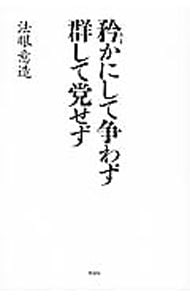 矜かにして争わず
群して党せず
法眼